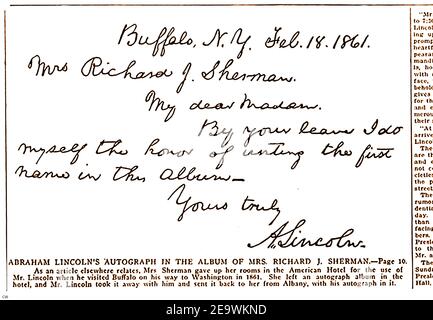 Buffalo, N.Y. Feb. 18. 1861.
Mrs Richard J. Sherman.
My dear Madam.
By your leave I do
myself the honor of writing the first
name in this album—
Yours truly
A. Lincoln.
ABRAHAM LINCOLN'S AUTOGRAPH IN THE ALBUM OF MRS. RICHARD J. SHERMAN.—Page 10.
As an article elsewhere relates, Mrs Sherman gave up her rooms in the American Hotel for the use of
Mr. Lincoln when he visited Buffalo on his way to Washington in 1861. She left an autograph album in the
hotel, and Mr. Lincoln took it away with him and sent it back to her from Albany, with his autograph in it.
"Mr
to 7:30
Lincol
ing up
prompt
heartf
pearan
mandi
is, ho
with
face,
behold
gives
for
and e
mour
their
"At
arrive
Lincol
The
are
and e
not co
cletler
the p
street
The
rumor
dentia
than
facing
bers.
Presid
to the
Mr.
The
Sunda
Presid
Hall.
alamy
Image ID: 2E9WKND
www.alamy.com